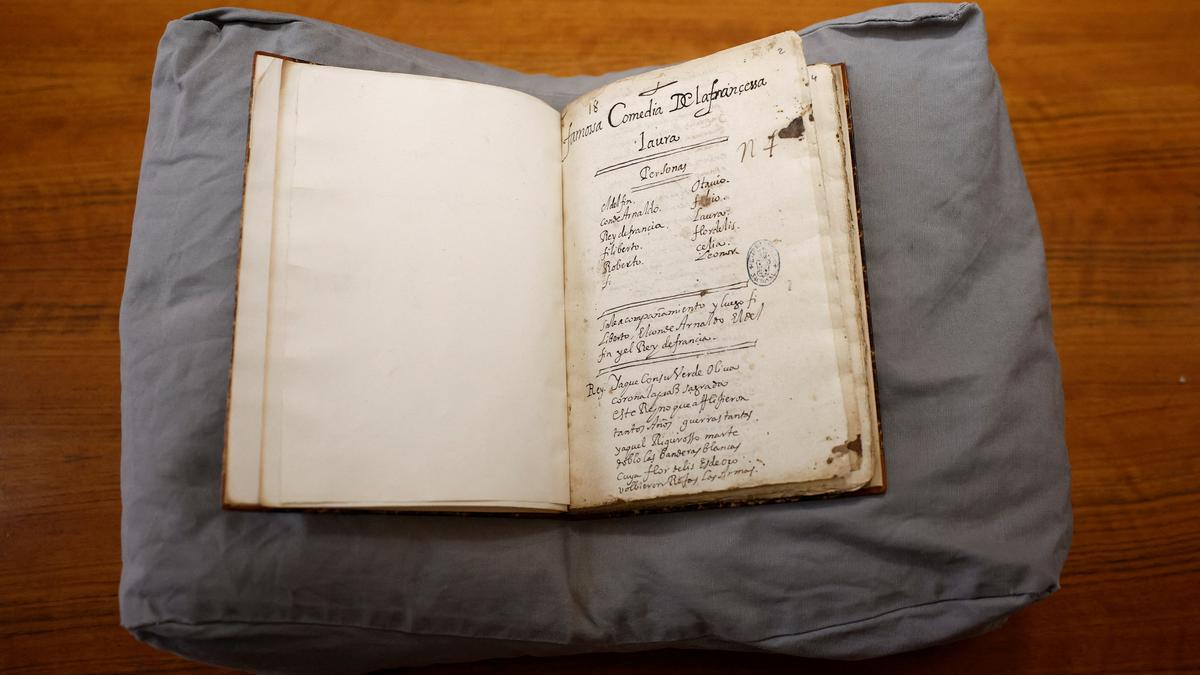 2
4
18
famossa Comedia De la françessa
laura
n 7
Personas
el delfin. Otauio.
conde Arnaldo. fabio.
Rey de francia. Laura.
filiberto. flordelis.
Roberto. celia.
Leonor
Sale acompañamiento y luego fi
liberto, El conde Arnaldo El del
fin y el Rey de francia.
Rey. Ya que Con su Verde Oliua
corona la paz sagrada
este Reyno que afligieron
tantos Años guerras tantas
ya que el Rigurosso marte
doblo las banderas blancas
cuya flor de lis Es de oro
volbieron Rojas las Armas.